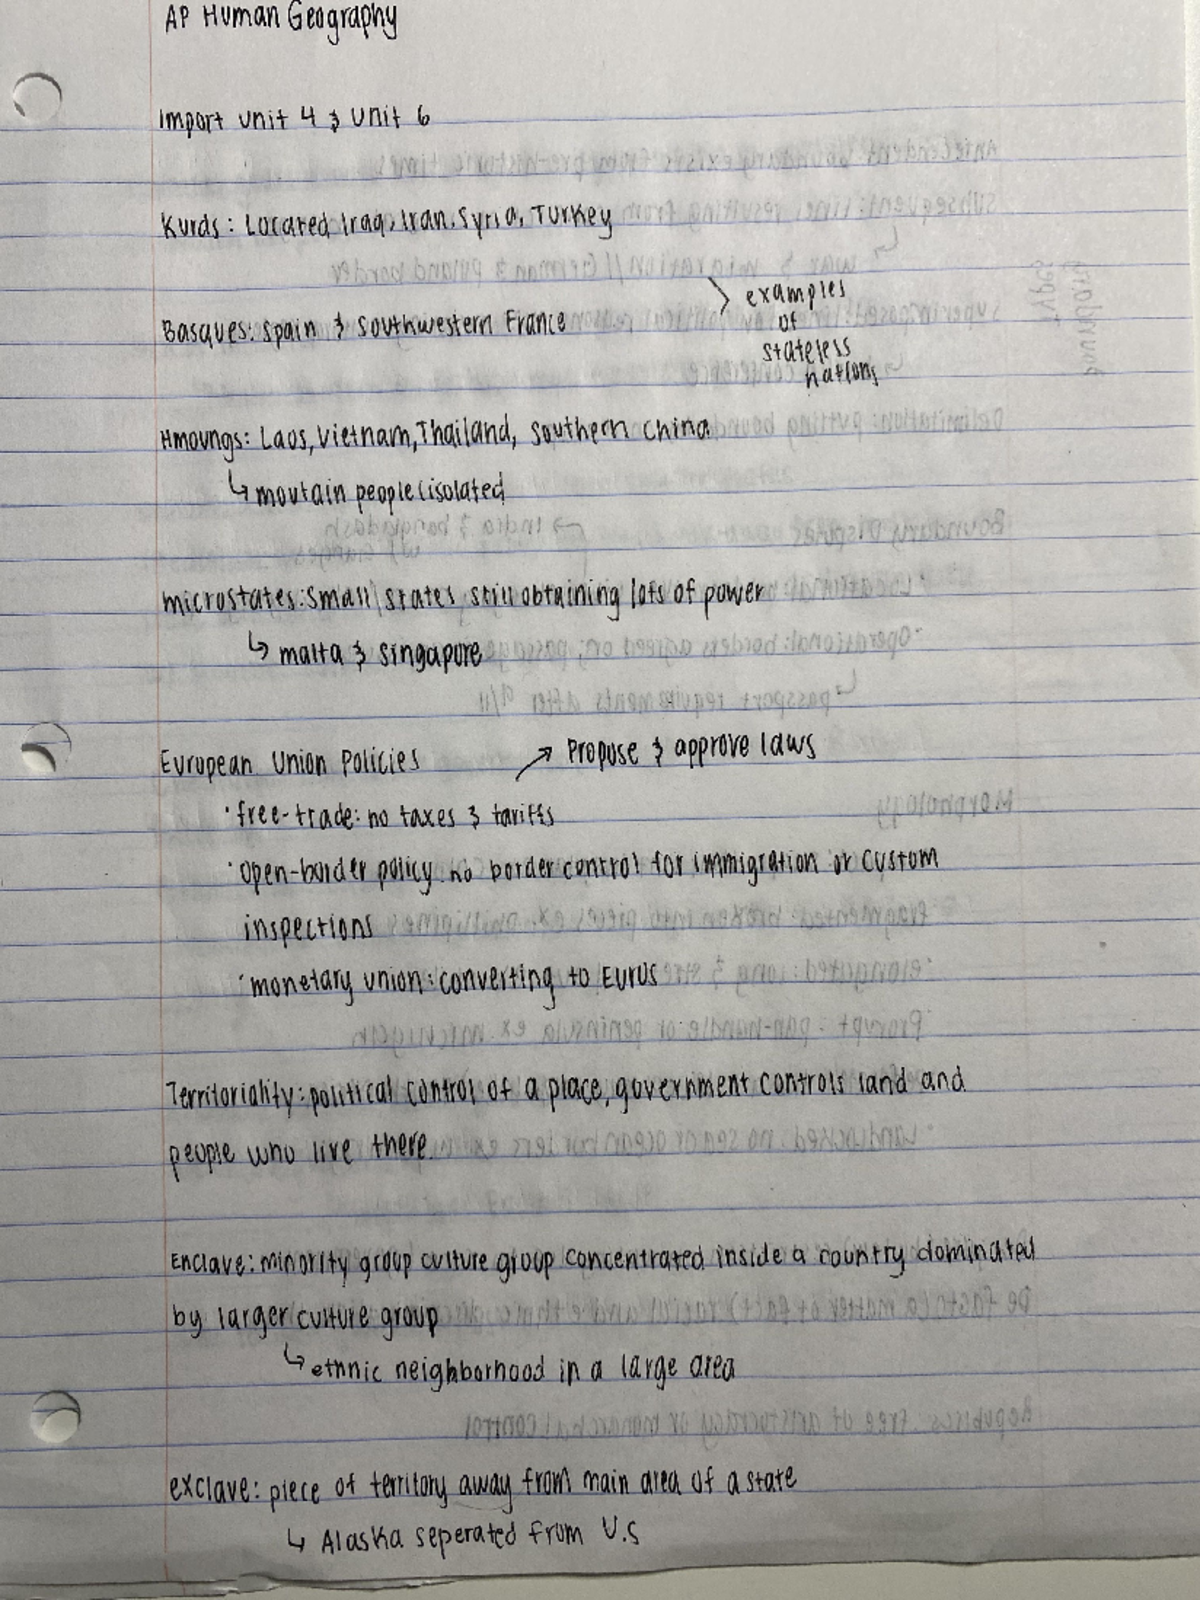 AP Human Geography
Import unit 4 & Unit 6
Kurds: Located Iraq, Iran, Syria, Turkey
Basques: Spain & Southwestern France
> examples
of
stateless
nations
Hmoungs: Laos, Vietnam, Thailand, Southern China
↳ moutain people (isolated
microstates: Small states, still obtaining lots of power
↳ malta & Singapore
European Union Policies ↗ Propose & approve laws
· free-trade: no taxes & tariffs
· Open-border policy: no border control for immigration or custom
inspections
· monetary union: converting to Euros
Territoriality: political control of a place, government controls land and
people who live there.
Enclave: minority group culture group concentrated inside a country dominated
by larger culture group
↳ ethnic neighborhood in a large area
exclave: piece of territory away from main area of a state
↳ Alaska seperated from U.S